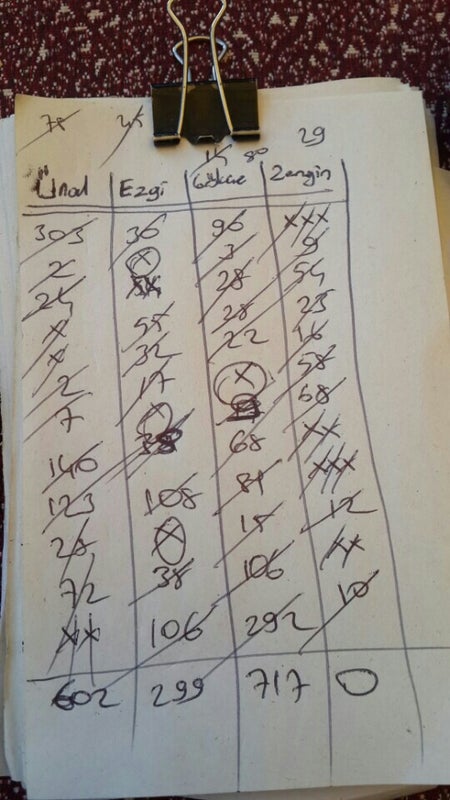 78 24 29
14 80
Ünal Ezgi Gökçe Zengin
303 36 96 XXX
2 X 3 9
24 28 54
X 54 28 23
X 32 22 16
2 17 X 58
7 X 68
140 38 68 XX
123 108 84 XXX
28 X 14 12
72 38 106 XX
XX 106 292 10
602 299 717 0